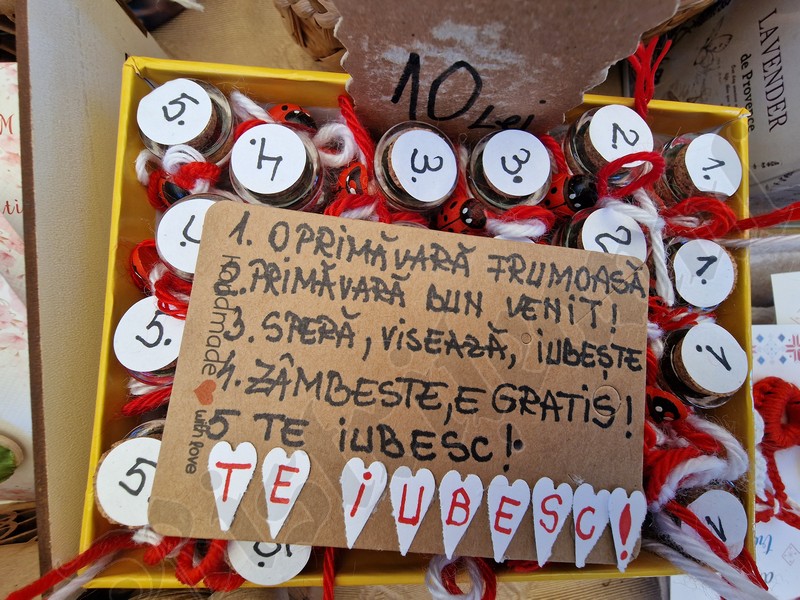 10 Lei
LAVENDER
de Provence
5.
4.
3.
3.
2.
1.
2
1.
5.
1.
5.
1. O PRIMĂVARĂ FRUMOASĂ
2. PRIMĂVARĂ BUN VENIT!
3. SPERĂ, VISEAZĂ, iUBEȘTE
4. ZÂMBESTE, E GRATIS!
5 TE iUBESC!
TE iUBESC!
handmade with love